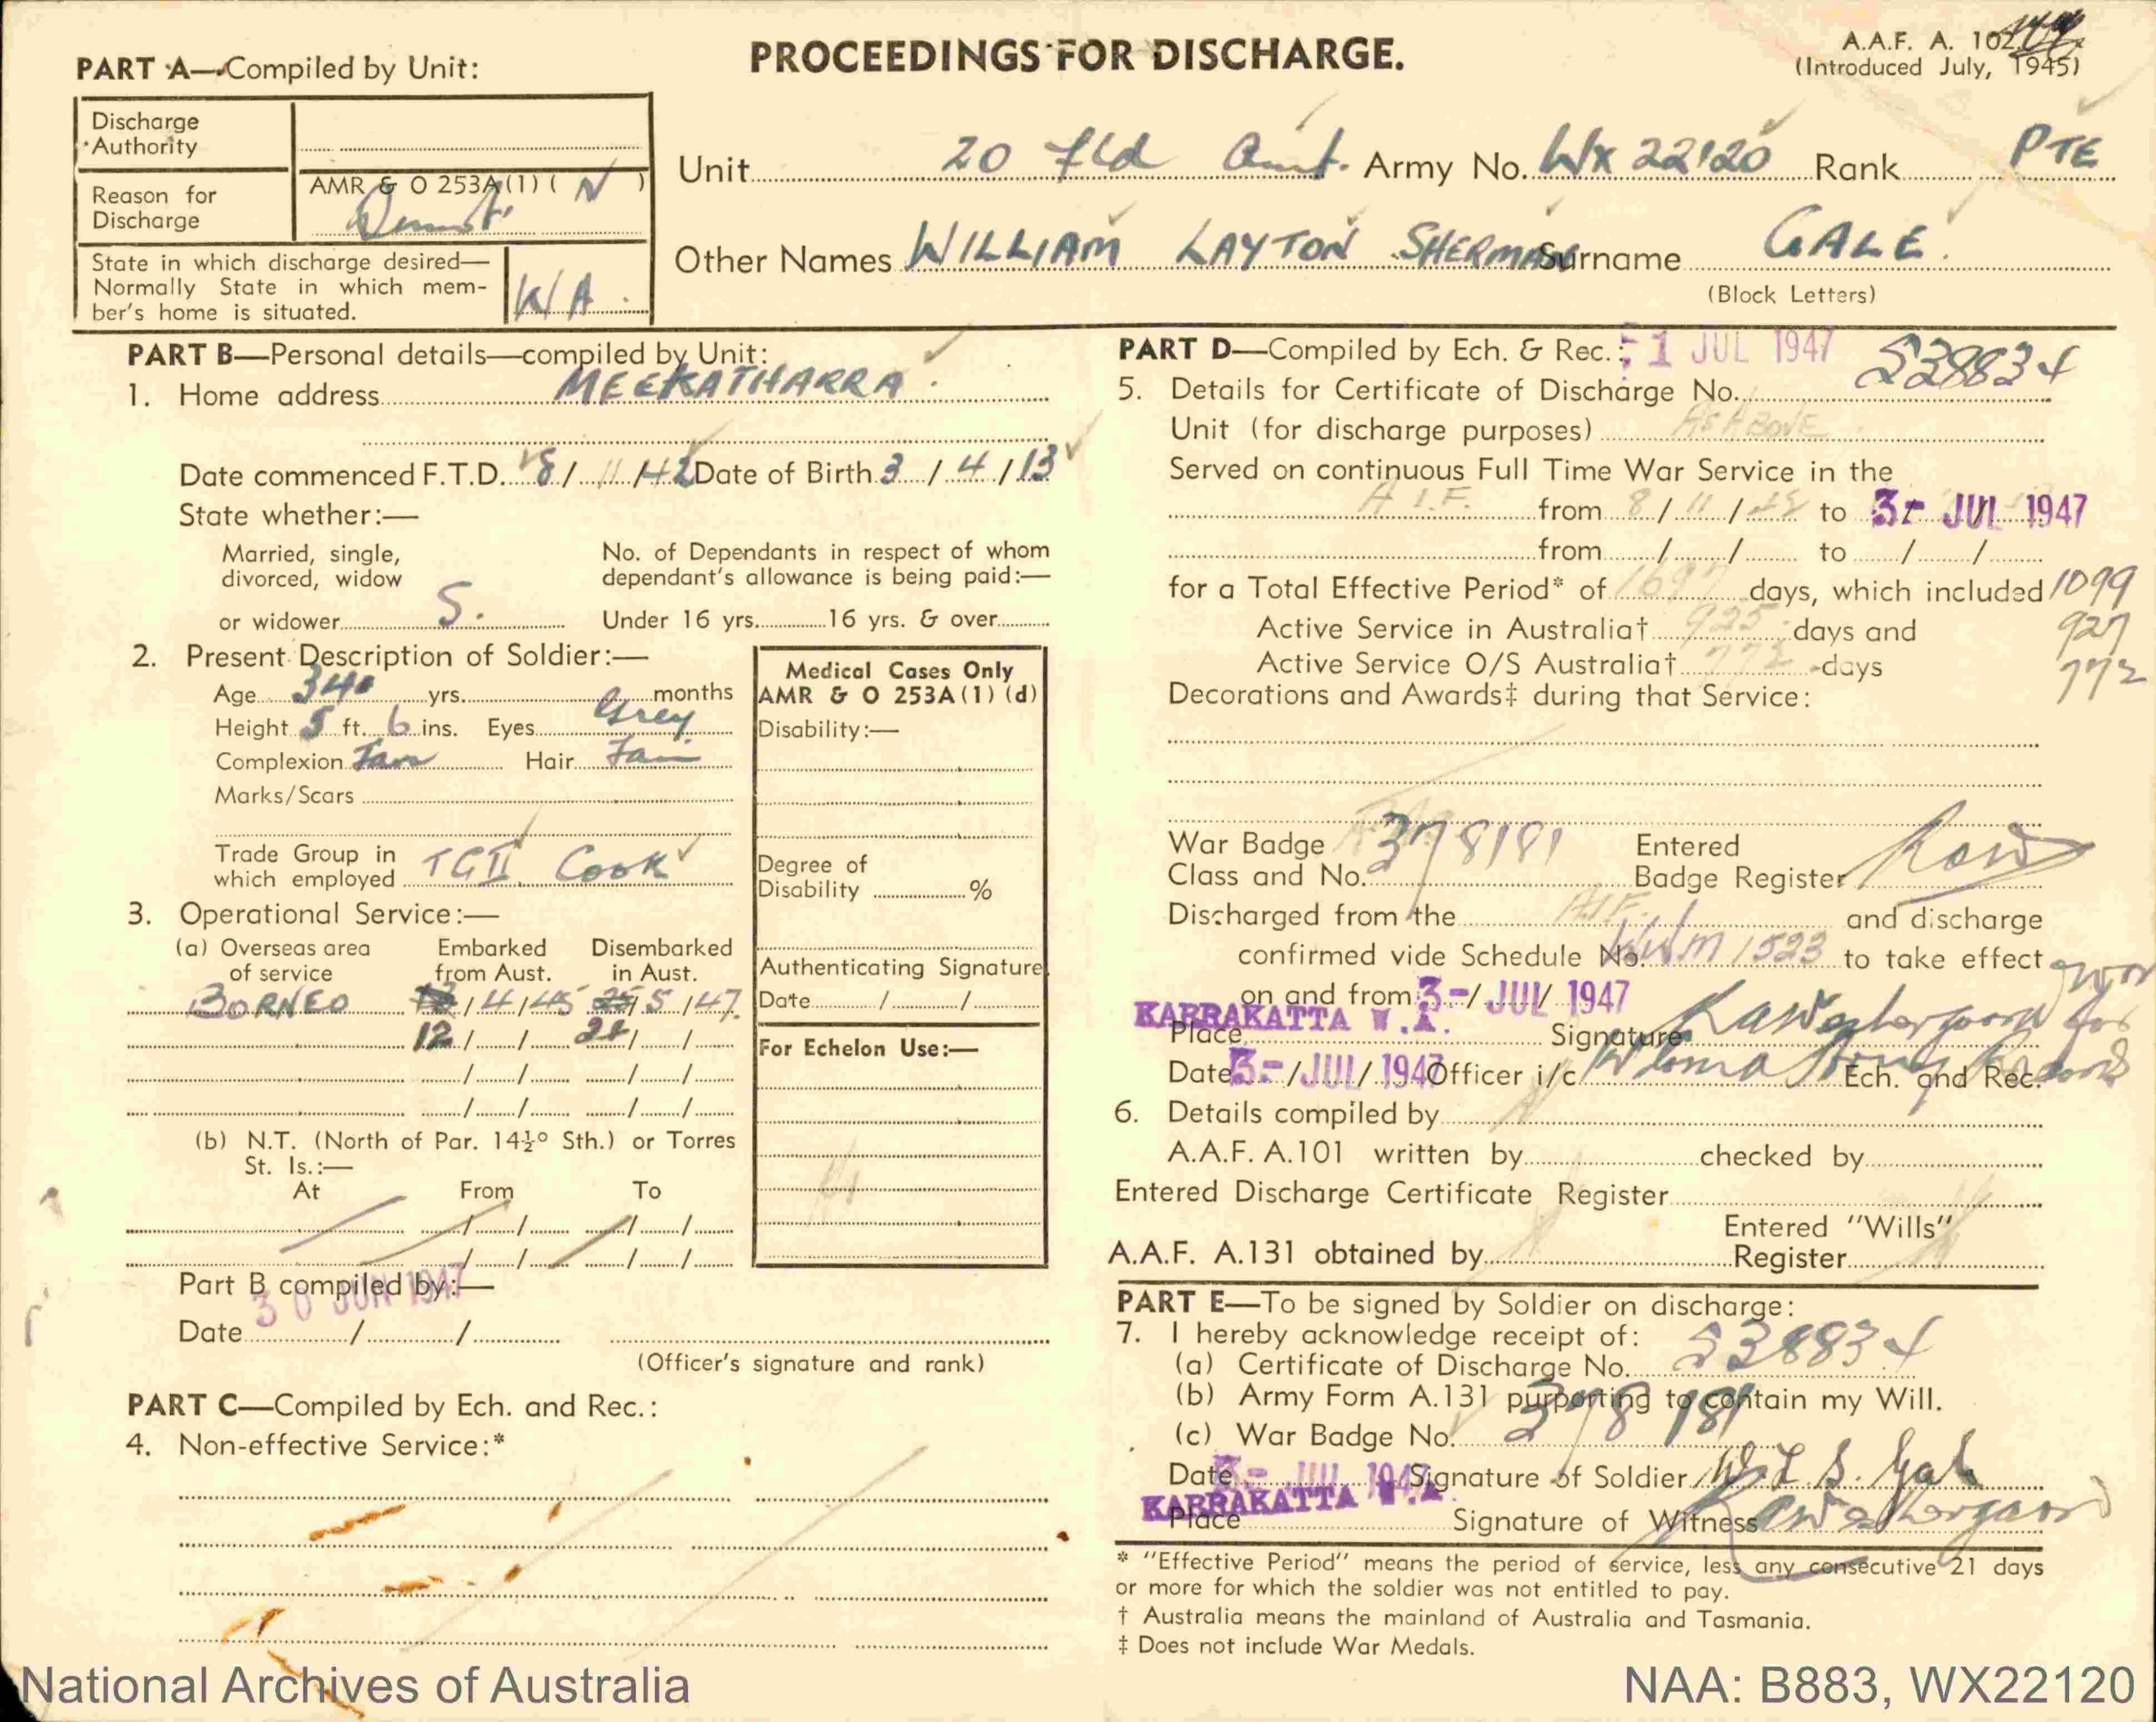 PART A—Compiled by Unit:
PROCEEDINGS FOR DISCHARGE.
A.A.F. A. 102
(Introduced July, 1945)
Discharge
Authority
Reason for
Discharge
AMR & O 253A(1) ( N )
Demob.
State in which discharge desired—
Normally State in which mem-
ber's home is situated.
WA.
Unit 20 fld Amb. Army No. WX 22120 Rank PTE
Other Names WILLIAM LAYTON SHERMAN Surname GALE.
(Block Letters)
PART B—Personal details—compiled by Unit:
1. Home address MEEKATHARRA.
Date commenced F.T.D. 8/11/42 Date of Birth 3/4/13
State whether:—
Married, single,
divorced, widow
or widower S.
No. of Dependants in respect of whom
dependant's allowance is being paid:—
Under 16 yrs. 16 yrs. & over
2. Present Description of Soldier:—
Age 34 yrs. months
Height 5 ft. 6 ins. Eyes Grey
Complexion Fair Hair Fair
Marks/Scars
Trade Group in
which employed TG II Cook
Medical Cases Only
AMR & O 253A(1) (d)
Disability:—
Degree of
Disability %
Authenticating Signature
Date / /
For Echelon Use:—
3. Operational Service:—
(a) Overseas area
of service
Embarked
from Aust.
Disembarked
in Aust.
BORNEO /4/45 /5/47.
12 / / / /
/ / / /
/ / / /
(b) N.T. (North of Par. 14½° Sth.) or Torres
St. Is.:—
At From To
/ / / /
/ / / /
Part B compiled by:—
30 JUN 1947
Date / /
(Officer's signature and rank)
PART C—Compiled by Ech. and Rec.:
4. Non-effective Service:*
PART D—Compiled by Ech. & Rec.: 1 JUL 1947
5. Details for Certificate of Discharge No. 238834
Unit (for discharge purposes) AS ABOVE
Served on continuous Full Time War Service in the
A.I.F. from 8/11/42 to 3- JUL 1947
from / / to / /
for a Total Effective Period* of 1697 days, which included 1099
Active Service in Australia† 925 days and 927
Active Service O/S Australia† 772 days 772
Decorations and Awards‡ during that Service:
War Badge
Class and No. 378181
Entered
Badge Register
Discharged from the A.I.F. and discharge
confirmed vide Schedule No. 1523 to take effect
on and from 3-/JUL/1947
KARRAKATTA W.A.
Place Signature
Date 3-/JUL/1947 Officer i/c Ech. and Rec.
6. Details compiled by
A.A.F. A.101 written by checked by
Entered Discharge Certificate Register
Entered "Wills"
A.A.F. A.131 obtained by Register
PART E—To be signed by Soldier on discharge:
7. I hereby acknowledge receipt of:
(a) Certificate of Discharge No. 238834
(b) Army Form A.131 purporting to contain my Will.
(c) War Badge No. 378181
Date 3- JUL 1947 Signature of Soldier W. L. S. Gale
KARRAKATTA W.A.
Place Signature of Witness
* "Effective Period" means the period of service, less any consecutive 21 days
or more for which the soldier was not entitled to pay.
† Australia means the mainland of Australia and Tasmania.
‡ Does not include War Medals.
National Archives of Australia
NAA: B883, WX22120